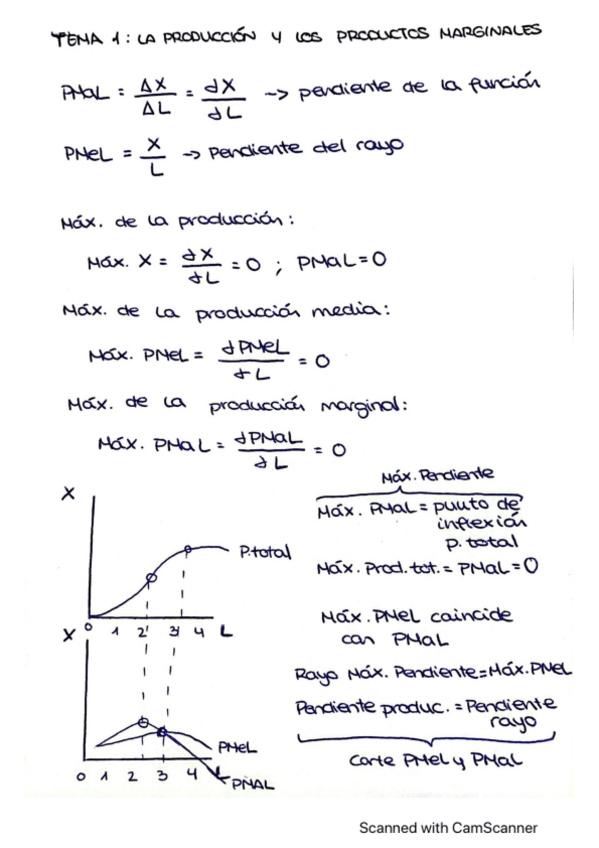 TEMA 1: LA PRODUCCIÓN Y LOS PRODUCTOS MARGINALES
PMaL = ΔX/ΔL = dX/dL -> pendiente de la función
PMeL = X/L -> Pendiente del rayo
Máx. de la producción:
Máx. X = dX/dL = 0 ; PMaL = 0
Máx. de la producción media:
Máx. PMeL = dPMeL/dL = 0
Máx. de la producción marginal:
Máx. PMaL = dPMaL/dL = 0
Máx. Pendiente
Máx. PMaL = punto de
inflexión
P. total
Máx. Prod. tot. = PMaL = 0
Máx. PMeL coincide
con PMaL
Rayo Máx. Pendiente = Máx. PMeL
Pendiente produc. = Pendiente
rayo
Corte PMeL y PMaL
X
P.total
0 1 2' 3' 4 L
X
PMeL
0 1 2 3 4 L
PMAL
Scanned with CamScanner